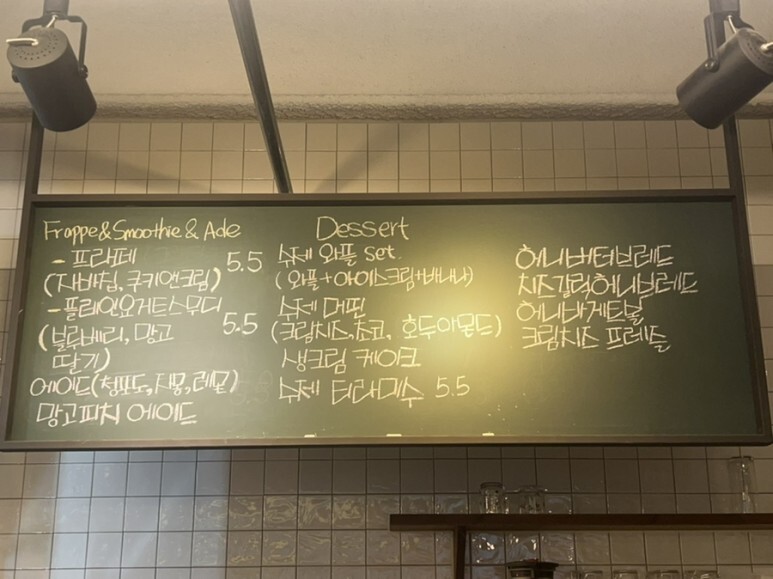 Frappe&Smoothie & Ade
- 프라페 5.5
(자바칩, 쿠키앤크림)
- 플레인요거트스무디
(블루베리, 망고 5.5
딸기)
에이드(청포도, 자몽, 레몬)
망고피치 에이드
Dessert
수제 와플 set.
(와플+아이스크림+바나나)
수제 머핀
(크림치즈, 초코, 호두아몬드)
생크림 케이크
수제 티라미수 5.5
허니버터브레드
치즈갈릭허니브레드
허니바게트볼
크림치즈 프레즐